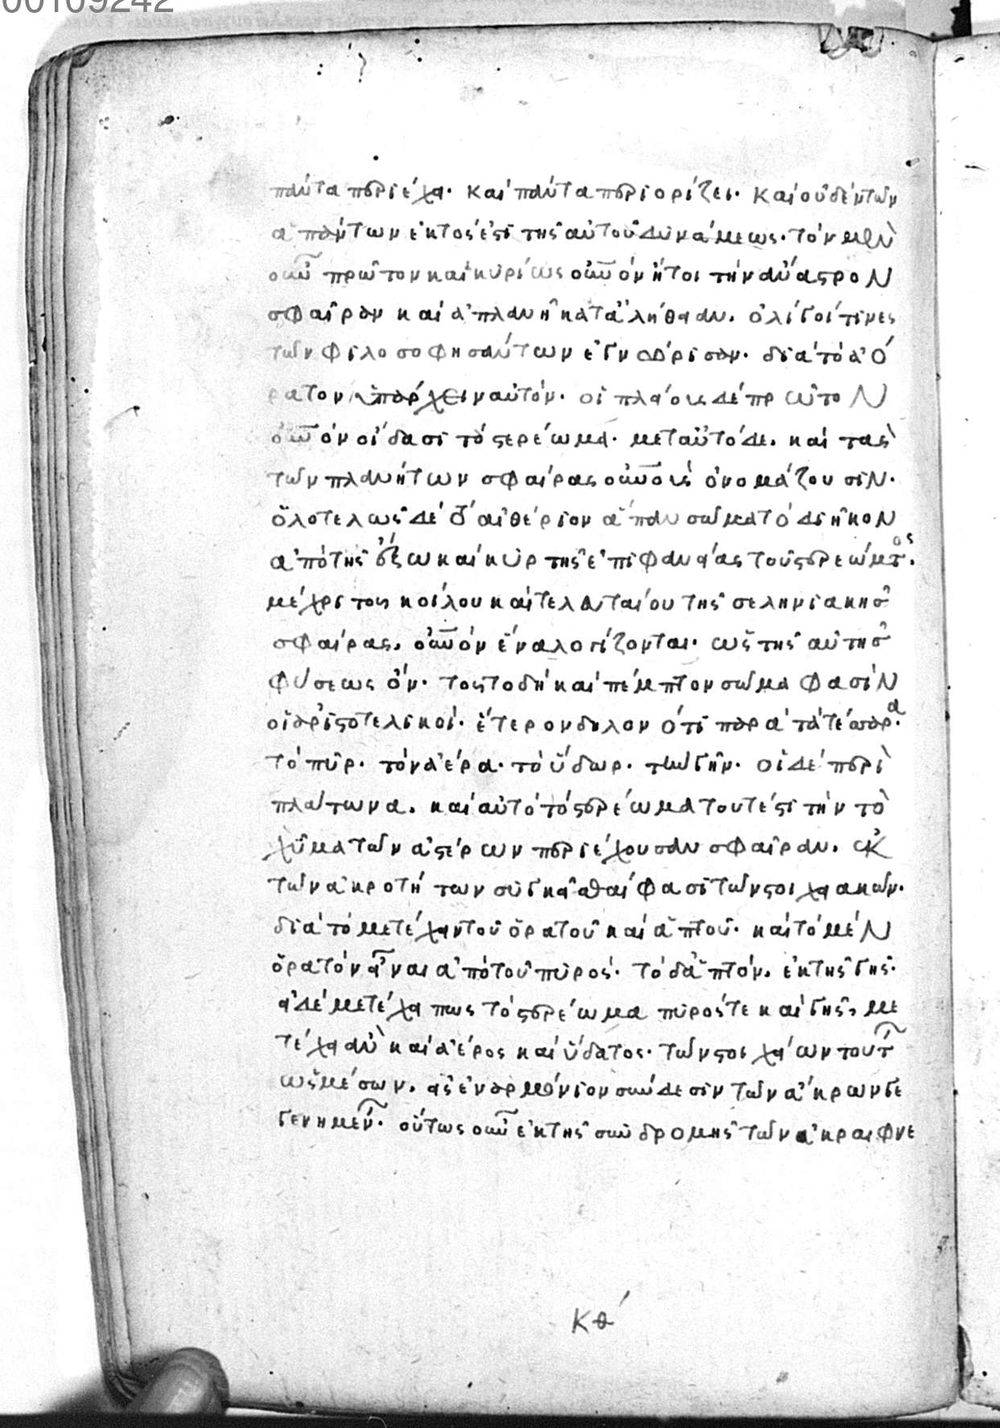 00109242
πάντα περιέχει· καὶ πάντα περιορίζει· καὶ οὐδὲν τῶν
ἁπάντων ἐκτός ἐστι τῆς αὐτοῦ δυνάμεως· τὸν μὲν
οὖν πρῶτον καὶ κυρίως οὐνὸν ἤτοι τὴν ἄναστρον
σφαῖραν καὶ ἀπλανῆ κατάληψιν. ὀλίγοι τινες
τῶν φιλοσοφησάντων ἐγνώρισαν· διὰ τὸ ἀό
ρατον ὑπάρχειν αὐτόν· οἱ πλείους δὲ πρῶτον
οὐνὸν οἴδασι τὸ στερέωμα· μετ αὐτὸ δὲ. καὶ τὰς
τῶν πλανήτων σφαίρας οὐνοὺς ὀνομάζουσιν·
ὁλοτελῶς δὲ τὸ αἰθέριον ἅπαν σῶμα τὸ διῆκον
ἀπὸ τῆς ἔξω καὶ κυρτῆς ἐπιφανείας τοῦ στερεώματος·
μέχρι τοῦ κοίλου καὶ τελευταίου τῆς σεληνιακῆς
σφαίρας. οὐνὸν ἕνα λογίζονται· ὡς τῆς αὐτῆς
φύσεως ὄν· τοῦτο δὴ καὶ πέμπτον σῶμα φασὶν
οἱ ἀριστοτελικοί· ἕτερον δηλον ὅτι παρὰ τὰ τέσσαρα·
τὸ πῦρ· τὸν ἀέρα· τὸ ὕδωρ· τὴν γῆν· οἱ δὲ περὶ
πλάτωνα. καὶ αὐτὸ τὸ στερέωμα τουτέστι τὴν τὸ
χύμα τῶν ἀστέρων περιέχουσαν σφαῖραν. ἐκ
τῶν ἀκροτήτων συγκεῖσθαί φασι τῶν στοιχειακῶν·
διὰ τὸ μετέχειν τοῦ ὁρατοῦ καὶ ἁπτοῦ· καὶ τὸ μὲν
ὁρατὸν εἶναι ἀπὸ τοῦ πυρός· τὸ δ ἁπτόν. ἐκ τῆς γῆς·
εἰ δὲ μετέχει πως τὸ στερέωμα πυρός τε καὶ γῆς, με
τέχει ἂν καὶ ἀέρος καὶ ὕδατος· τῶν στοιχείων τούτων
ὡς μέσων. εἰς ἐναρμόνιον σύνδεσιν τῶν ἄκρων γε
γενημένων· οὕτως οὖν ἐκ τῆς συνδρομῆς τῶν ἀκραιφνε
κθ´